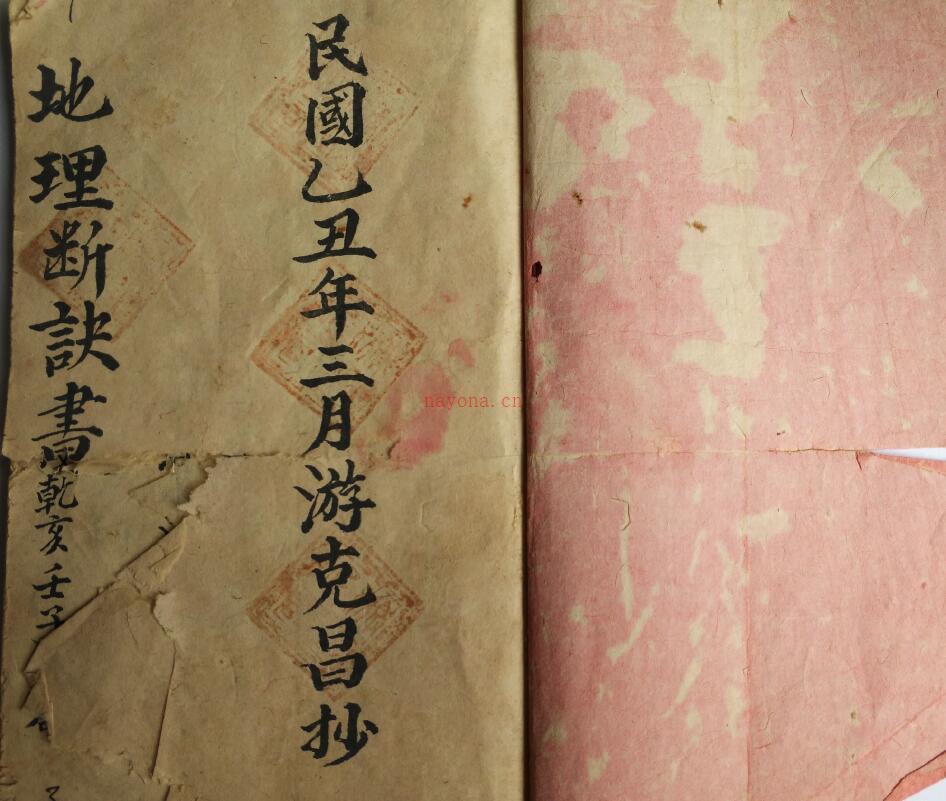 民國乙丑年三月游克昌抄
地理断訣書乾亥壬子
nayona.cn